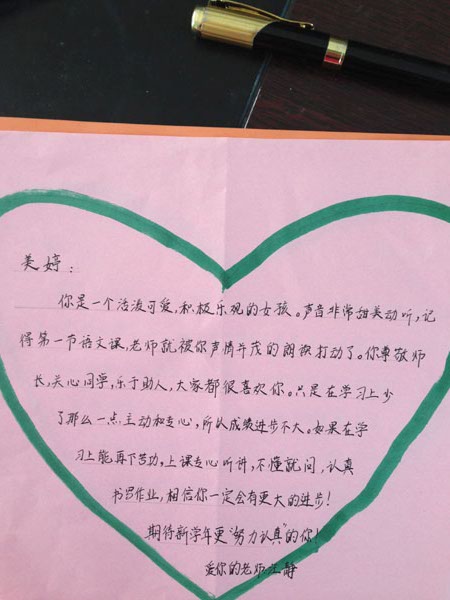 美婷：
你是一个活泼可爱，积极乐观的女孩。声音非常甜美动听，记
得第一节语文课，老师就被你声情并茂的朗读打动了。你尊敬师
长，关心同学，乐于助人，大家都很喜欢你。只是在学习上少
了那么一点主动和专心，所以成绩进步不大。如果在学
习上能再下苦功，上课专心听讲，不懂就问，认真
书写作业，相信你一定会有更大的进步！
期待新学年更“努力认真”的你！
爱你的老师江静